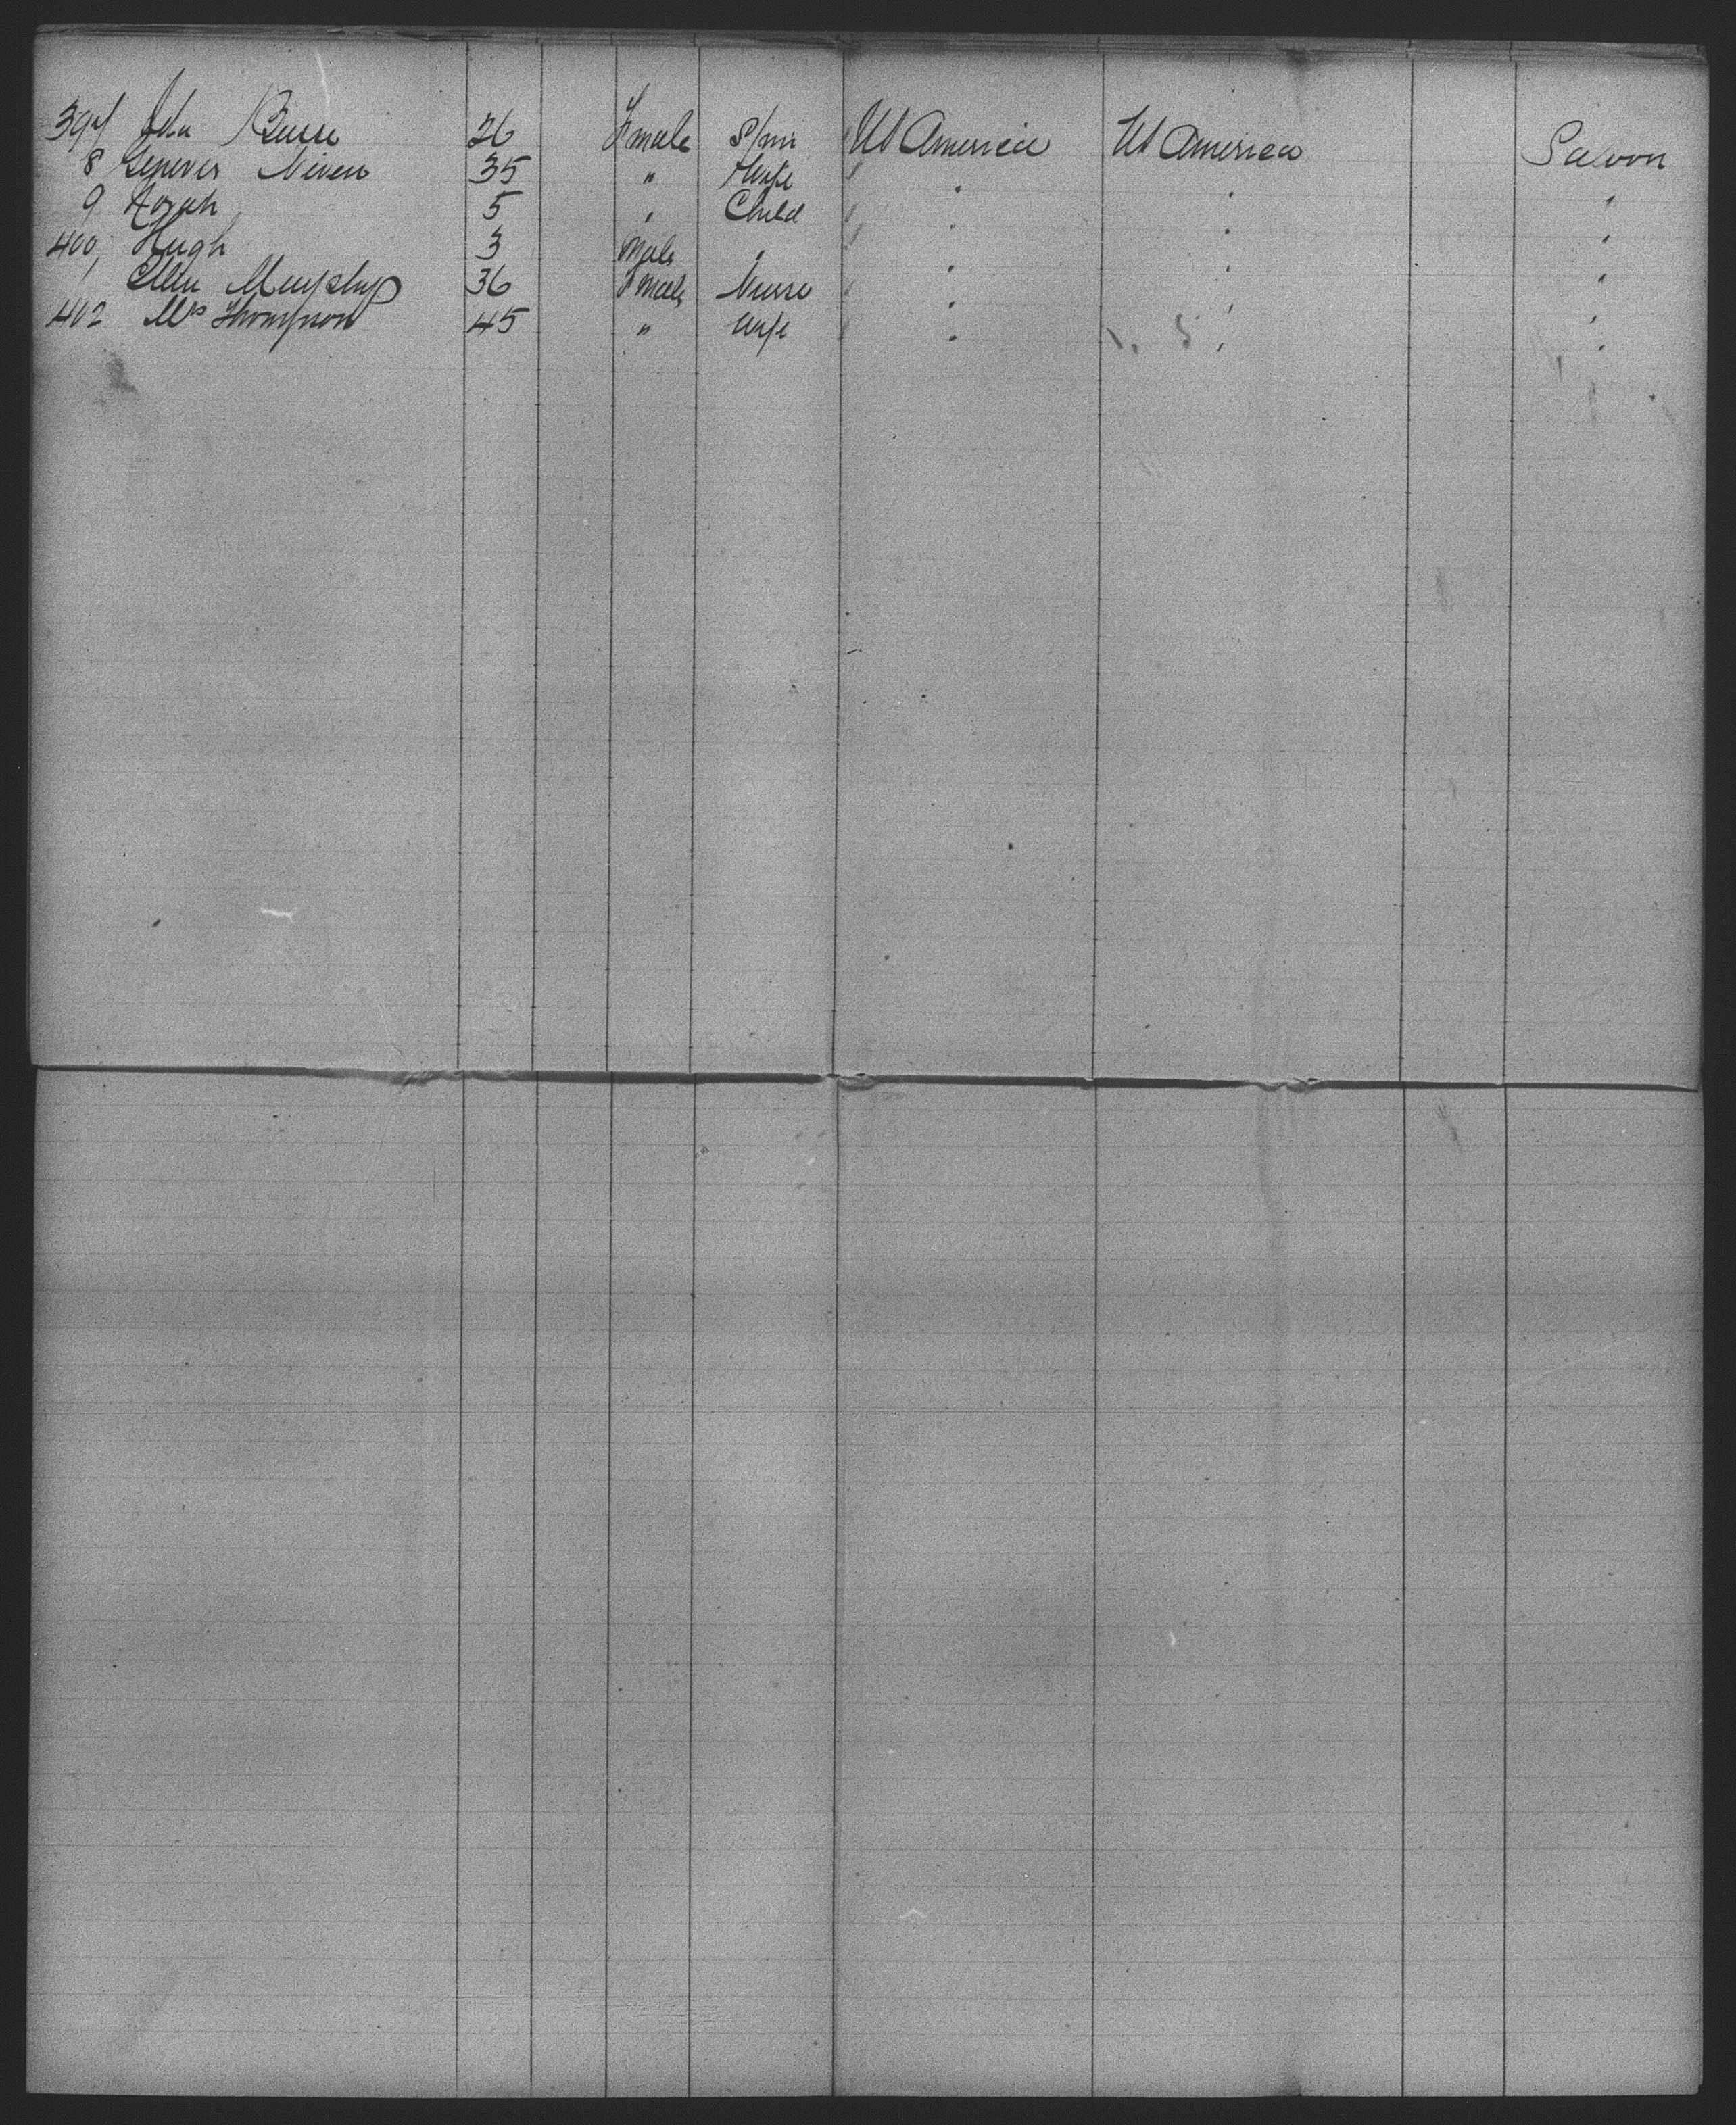 397 Ida 26 Fmale S/mi US America US America Saloon
8 Genever Niven 35 " Wife " " "
9 Norah 5 " Child " " "
400 Hugh 3 Male " " " "
1 Ellen Murphy 36 Fmale Nurse " " "
402 Mrs Thompson 45 " Wife " " "